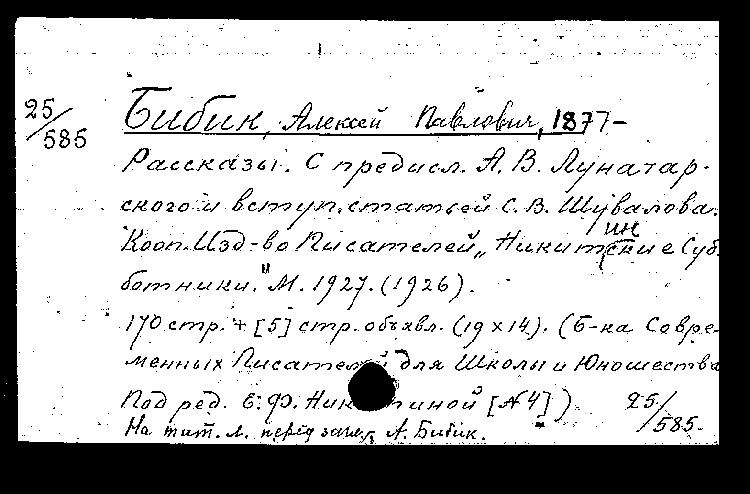 25/585
Бибик, Алексей Павлович, 1877-
Рассказы. С предисл. А. В. Луначар-
ского и вступ. статьей С. В. Шувалова.
Кооп. Изд-во Писателей „Никитинские Суб-
ботники." М. 1927. (1926).
170 стр. + [5] стр. объявл. (19 x 14). (Б-ка Совре-
менных Писателей для Школы и Юношества
Под ред. Е. Ф. Никитиной [№ 4]) 25/585.
На тит. л. перед загл. А. Бибик.